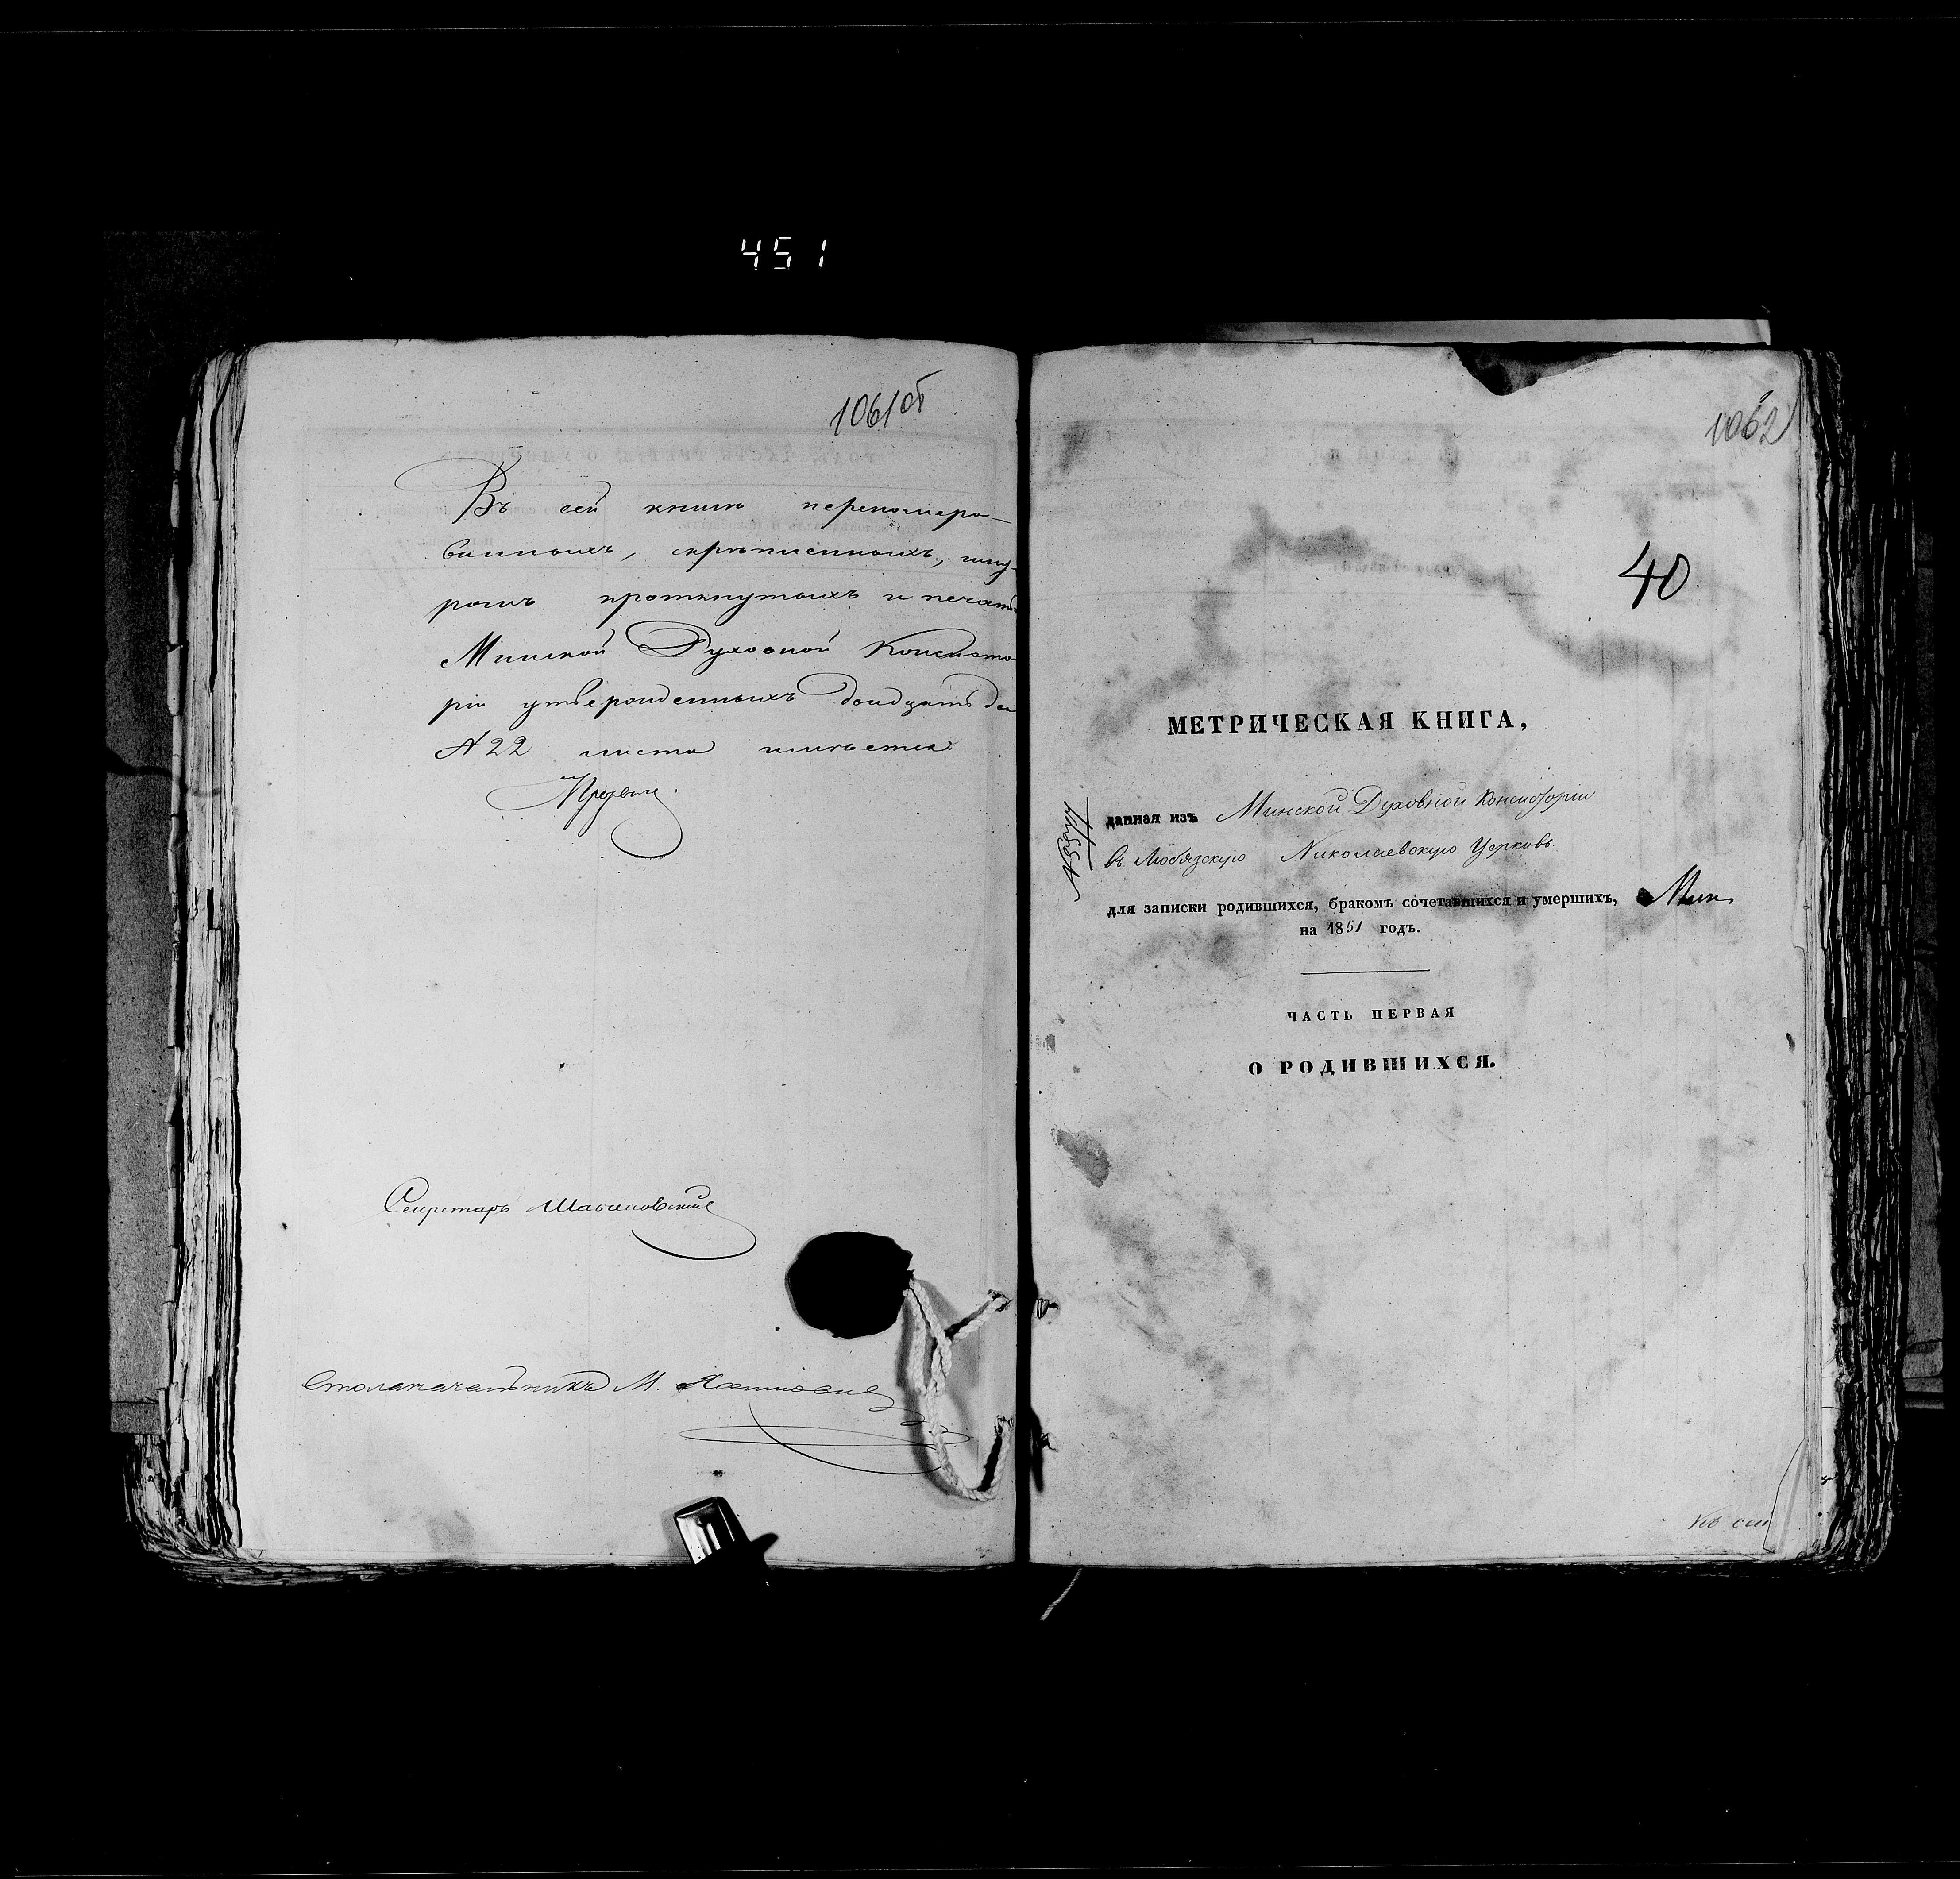 451
1061об
Въ сей книгѣ перенумеро-
ванныхъ, скрѣпленныхъ, шну-
ромъ проткнутыхъ и печатью
Минской Духовной Консисто-
ріи утвержденныхъ двадцать два
22 листа имѣется
Секретарь
Столоначальникъ М.
1062
40
МЕТРИЧЕСКАЯ КНИГА,
данная изъ Минской Духовной Консисторіи
въ Любязскую Николаевскую Церковь
для записки родившихся, бракомъ сочетавшихся и умершихъ,
на 1851 годъ.
ЧАСТЬ ПЕРВАЯ
О РОДИВШИХСЯ.